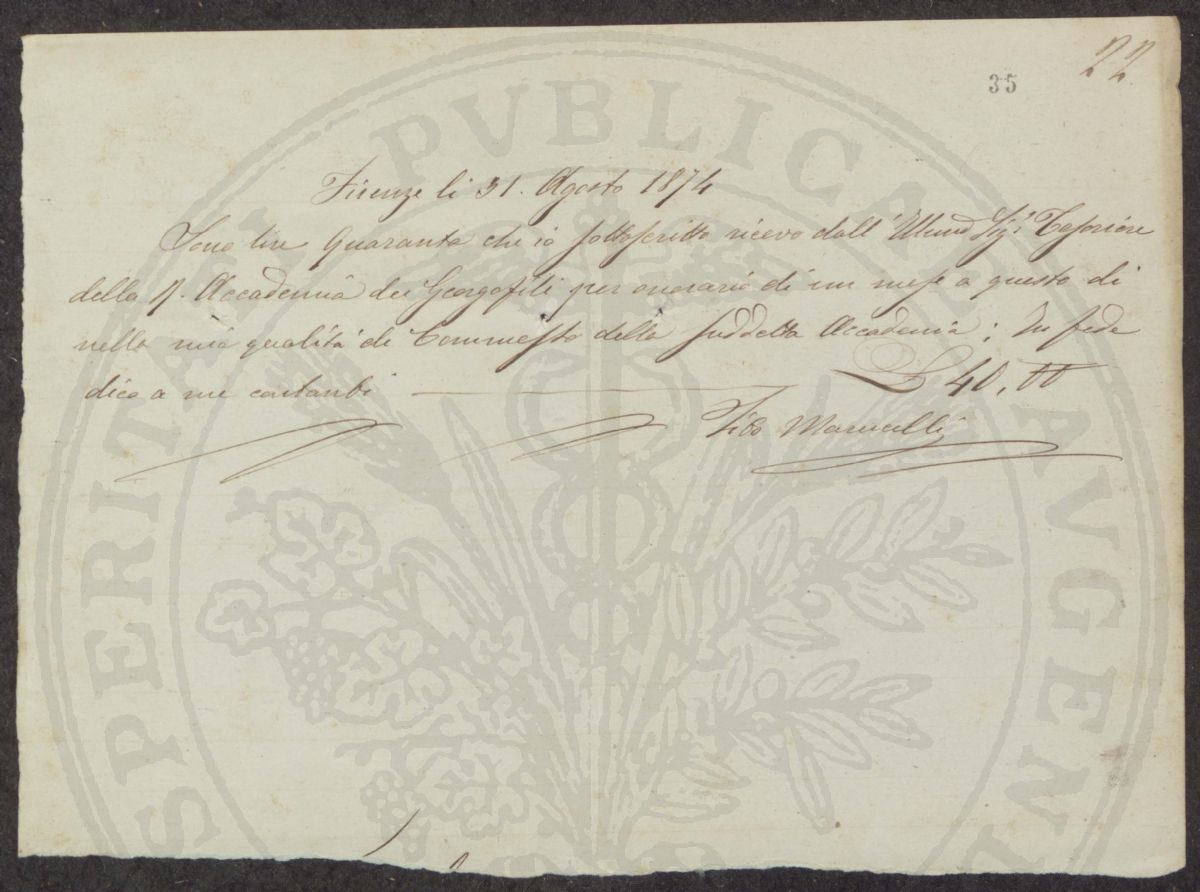 22
35
Firenze li 31. Agosto 1874
Sono lire Quaranta che io sottoscritto ricevo dall' Illmo Sigr Tesoriere
della R. Accademia dei Georgofili per onorario di un mese a questo di
nella mia qualità di Commesso della suddetta Accademia; In fede
dico a me contanti L 40, 00
Tito Marucelli
PERITATI PVBLICAE AVGEN